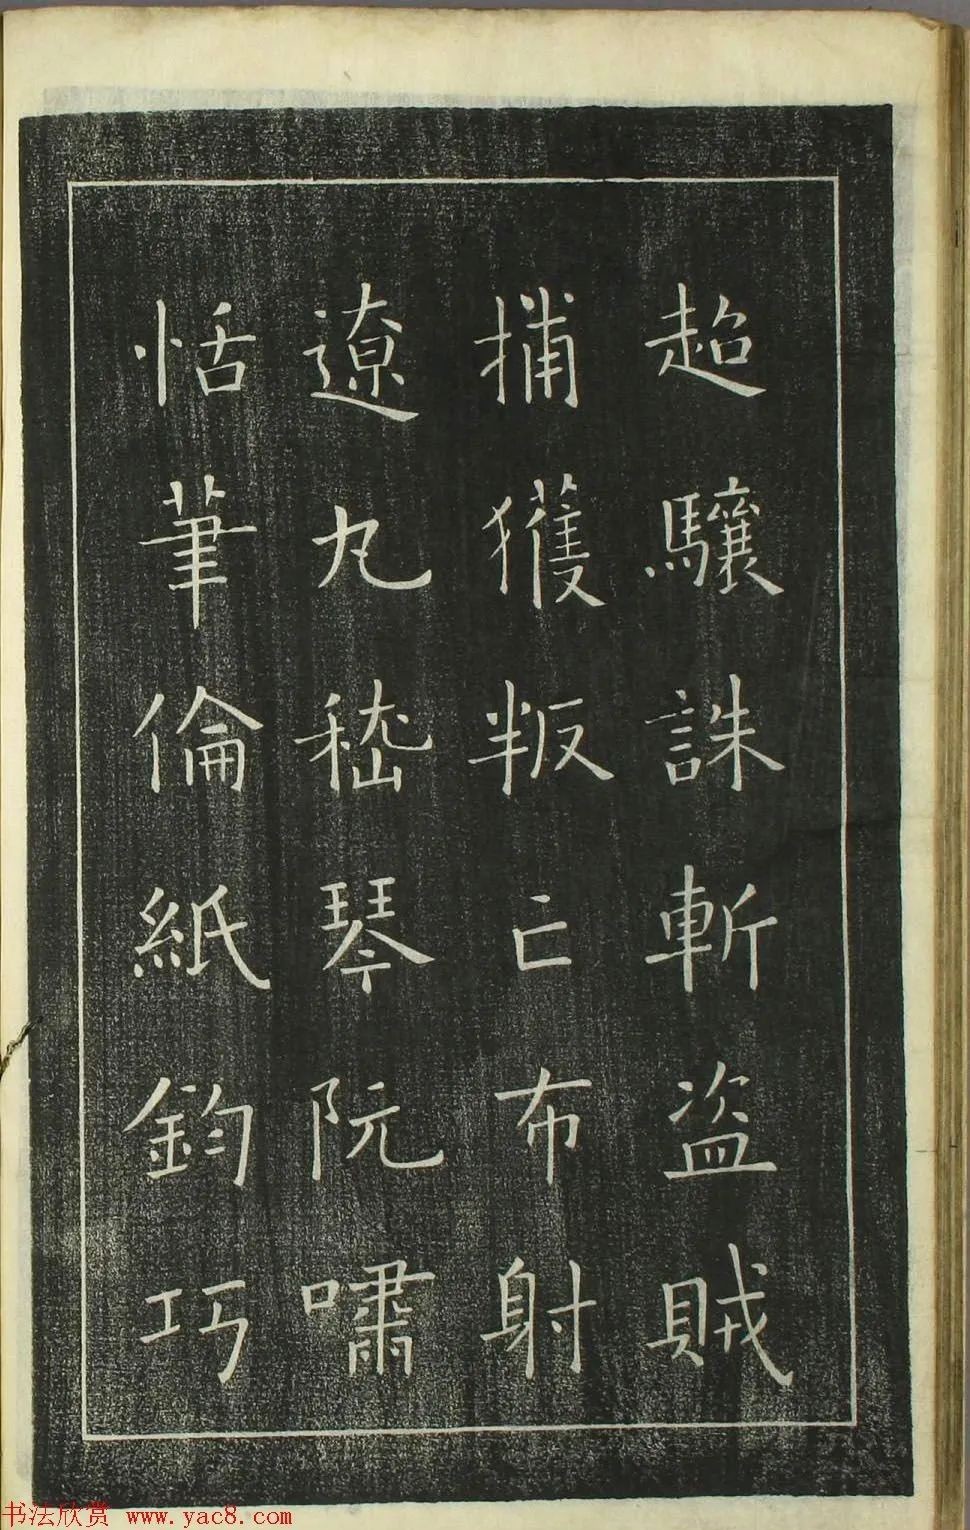 超驤誅斬盗賊
捕獲叛亡布射
遼丸嵇琴阮嘯
恬筆倫紙鈞巧
书法欣赏 www.yac8.com